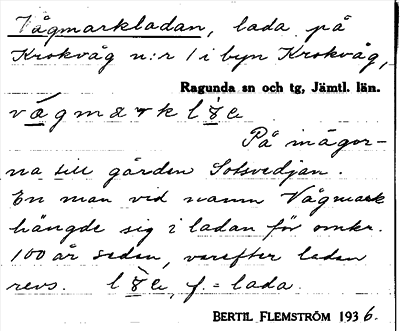 Vågmarkladan, lada på
Krokvåg n:r 1 i byn Krokvåg,
Ragunda sn och tg, Jämtl. län.
På inägor-
na till gården Sotsvedjan.
En man vid namn Vågmark
hängde sig i ladan för omkr.
100 år sedan, varefter ladan
revs. f = lada.
BERTIL FLEMSTRÖM 1936.